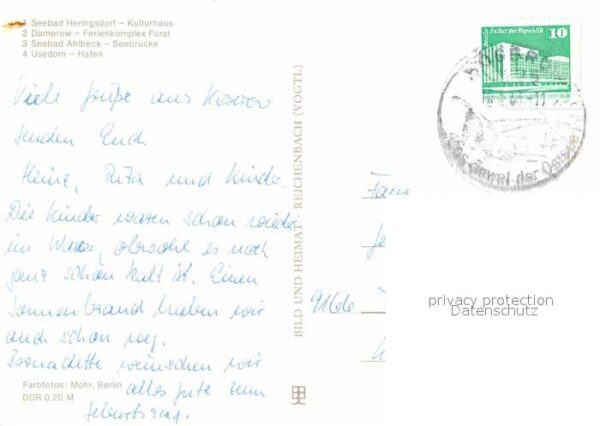 1 Seebad Heringsdorf – Kulturhaus
2 Damerow – Ferienkomplex Forst
3 Seebad Ahlbeck – Seebrücke
4 Usedom – Hafen
Viele Grüße aus Koserow
senden Euch
Heinz, Rita und Kinder.
Die Kinder waren schon wieder
im Wasser, obwohl es noch
ganz schön kalt ist. Einen
Sonnenbrand haben wir
auch schon weg.
Bernadette wünschen wir
alles gute zum
Geburtstag.
Farbfotos: Mohr, Berlin
DDR 0,20 M
BILD UND HEIMAT REICHENBACH (VOGTL)
Berlin Palast der Republik
10
der Ostsee
Fam
9166
privacy protection
Datenschutz